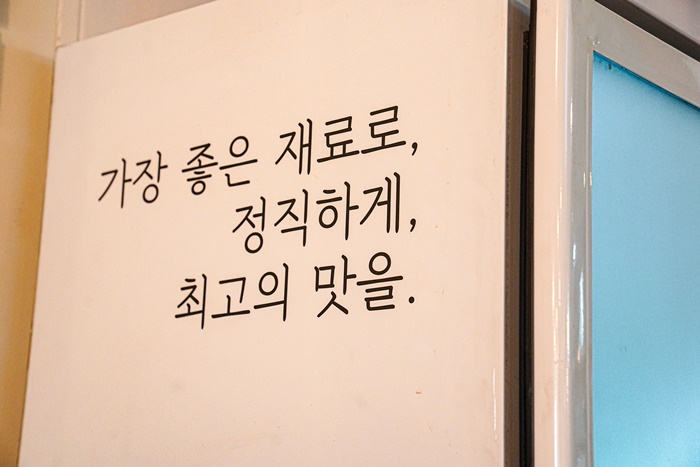 가장 좋은 재료로,
정직하게,
최고의 맛을.